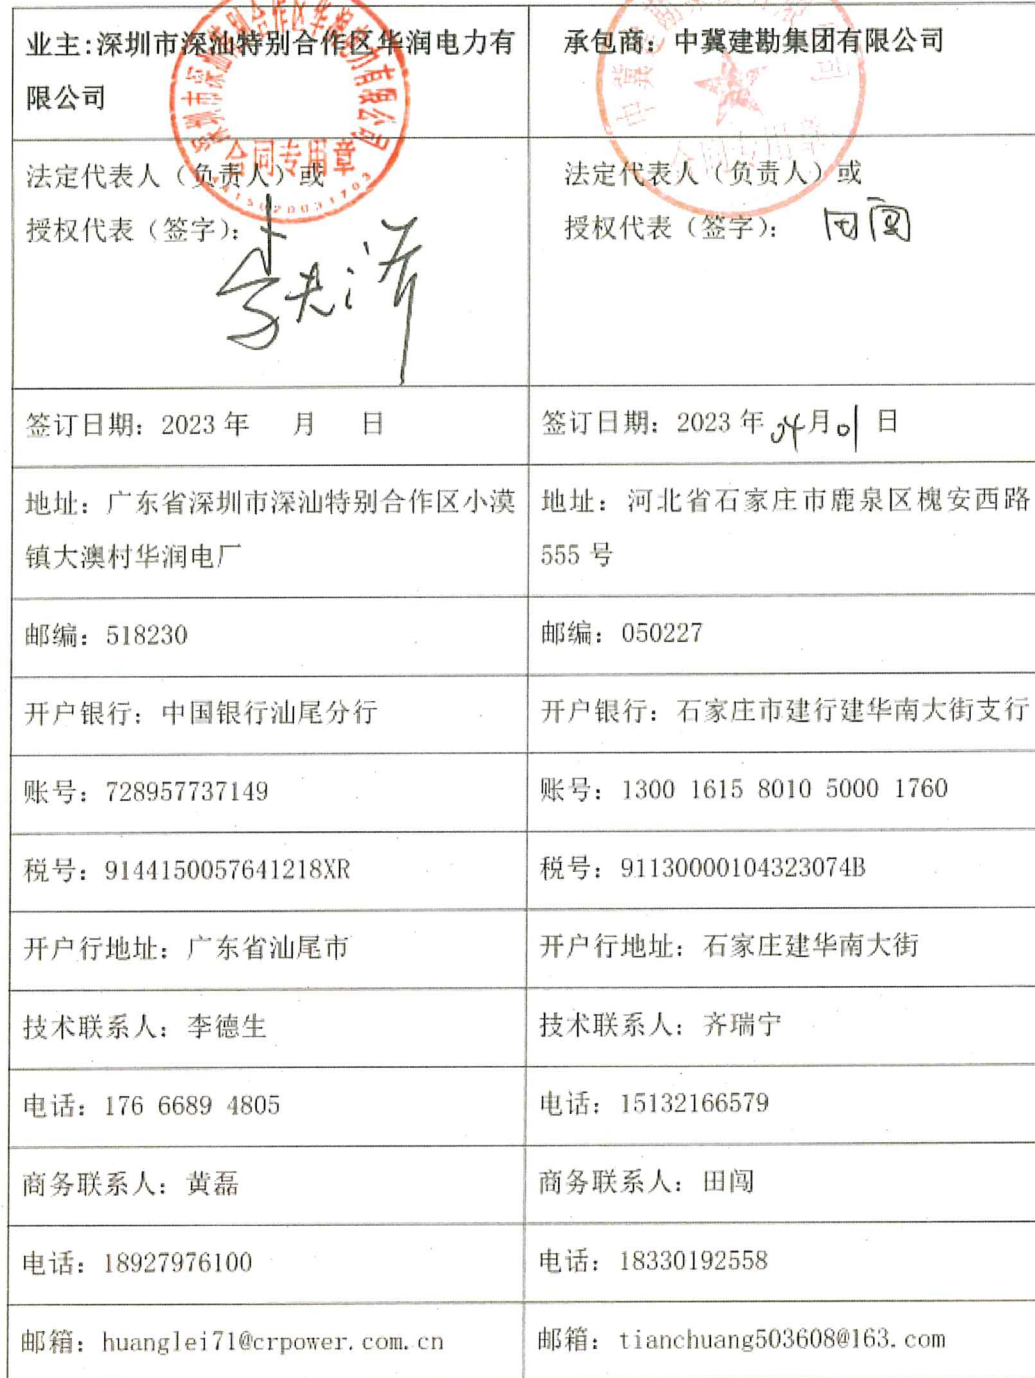 业主:深圳市深汕特别合作区华润电力有
限公司
承包商：中冀建勘集团有限公司
深圳市深汕特别合作区华润电力有限公司
合同专用章
4415020031703
法定代表人（负责人）或
授权代表（签字）：
法定代表人（负责人）或
授权代表（签字）： 田闯
签订日期：2023 年 月 日
签订日期：2023 年 04 月 01 日
地址：广东省深圳市深汕特别合作区小漠
镇大澳村华润电厂
地址：河北省石家庄市鹿泉区槐安西路
555 号
邮编：518230
邮编：050227
开户银行：中国银行汕尾分行
开户银行：石家庄市建行建华南大街支行
账号：728957737149
账号：1300 1615 8010 5000 1760
税号：9144150057641218XR
税号：91130000104323074B
开户行地址：广东省汕尾市
开户行地址：石家庄建华南大街
技术联系人：李德生
技术联系人：齐瑞宁
电话：176 6689 4805
电话：15132166579
商务联系人：黄磊
商务联系人：田闯
电话：18927976100
电话：18330192558
邮箱：huanglei71@crpower.com.cn
邮箱：tianchuang503608@163.com